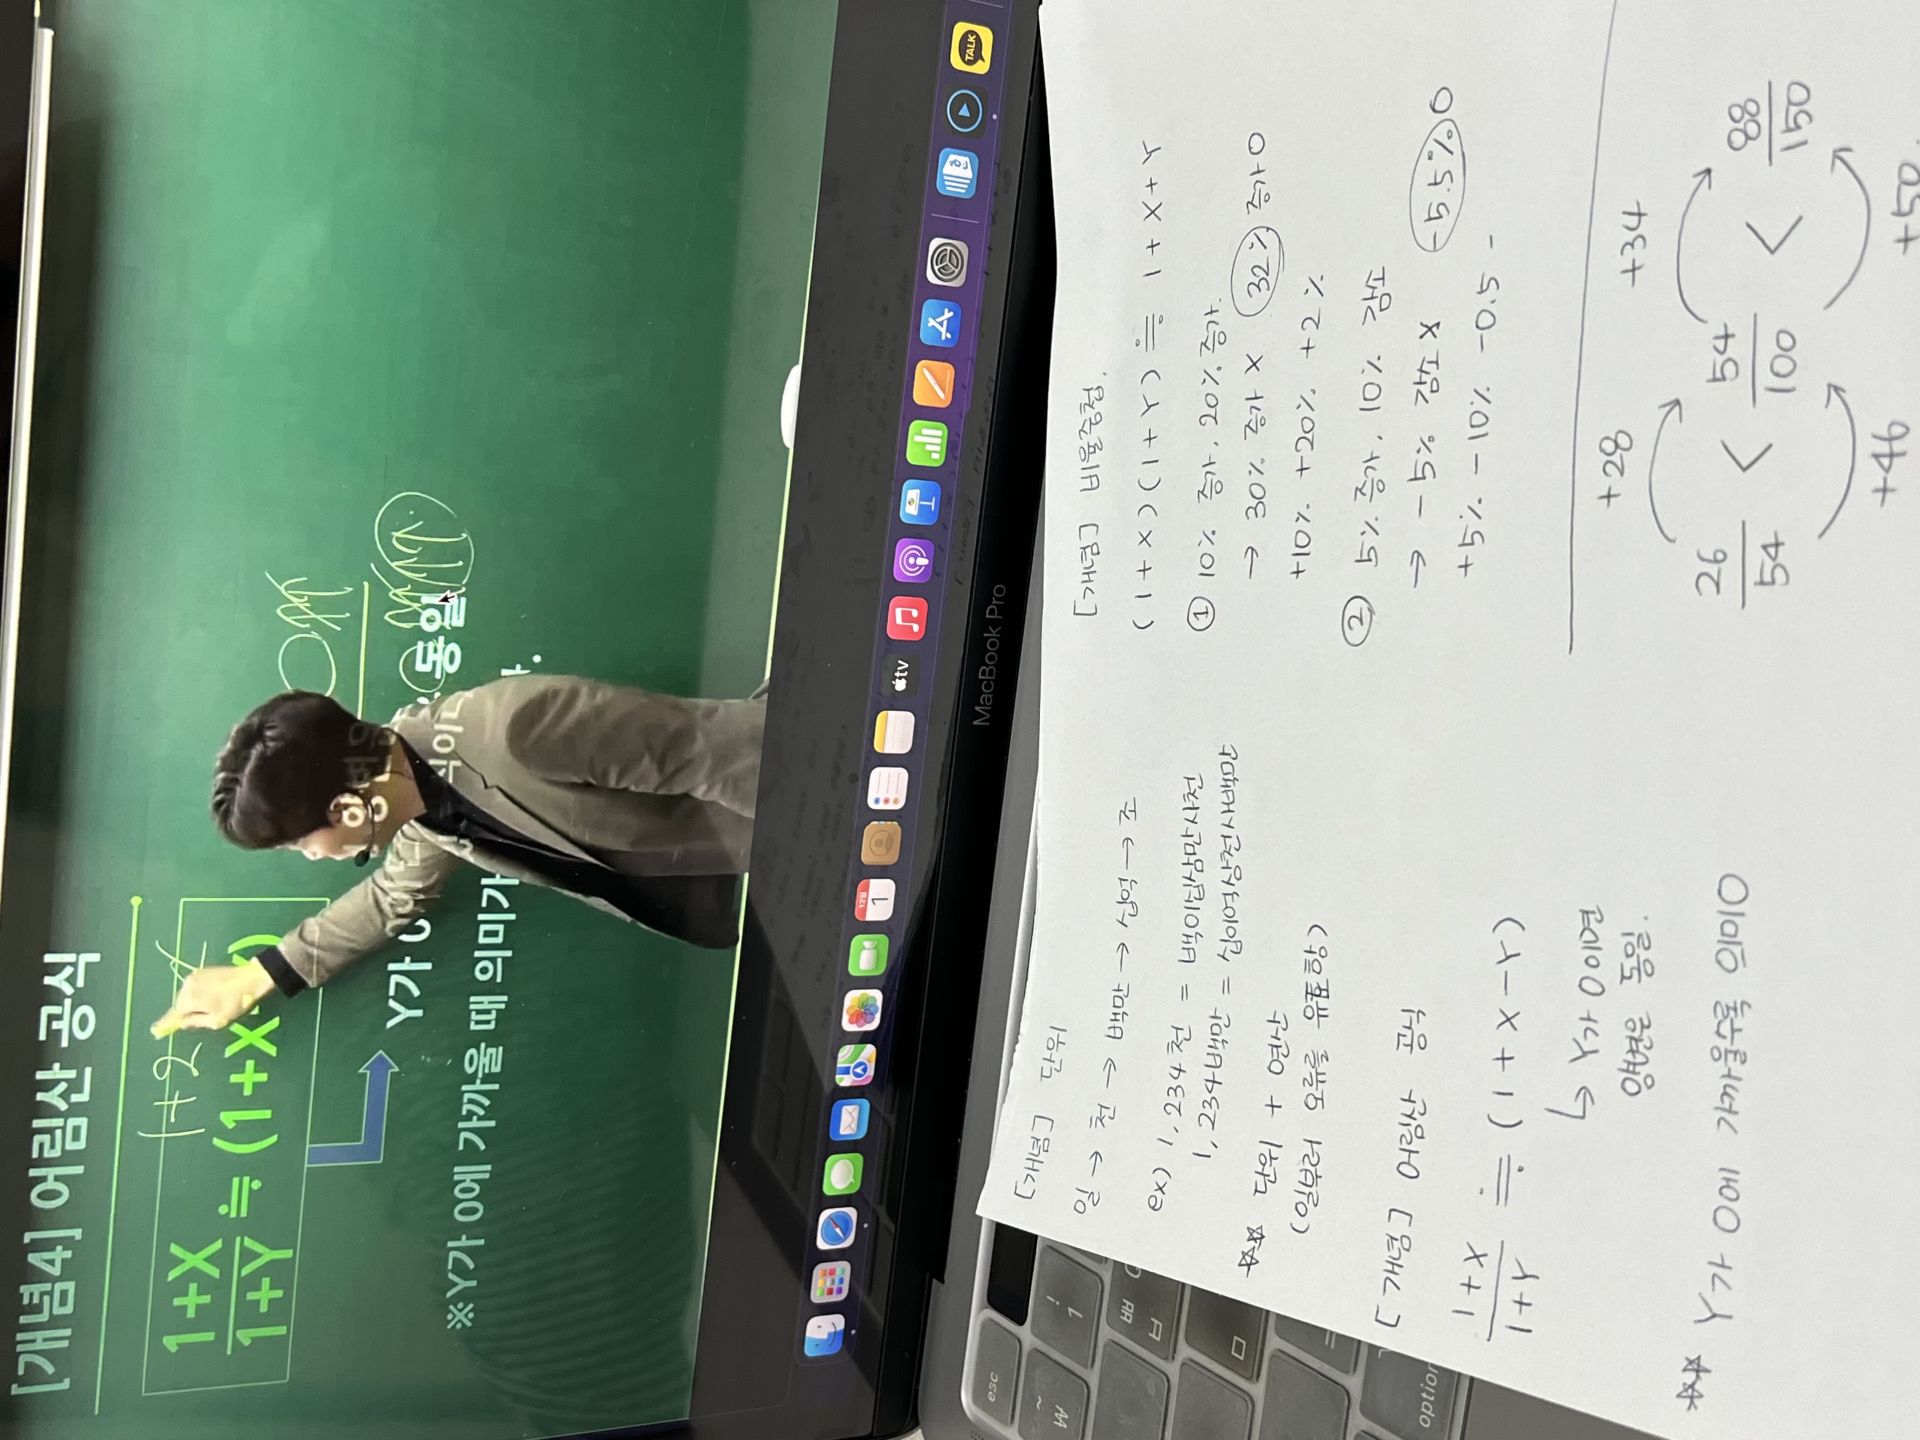 [개념4] 어림산 공식
1+2
1+X
1+Y
≒ (1+X
Y가 0
동일
※Y가 0에 가까울 때 의미가
다.
12월
1
tv
TALK
MacBook Pro
esc
option
[개념] 단위
일 → 천 → 백만 → 십억 → 조
ex) 1,234천 = 백이십삼만사천
1,234백만 = 십이억삼천사백만
☆☆ 단위 + 연구
[개념] 어림산 공식
1+X
1+Y
≒ (1+X-Y)
↳ Y가 0이면
양변은 동일.
☆☆ Y가 0에 가까울수록 유의미
[개념] 비율중첩.
(1+X)(1+Y) ≒ 1+X+Y
① 10% 증가, 20% 증가.
→ 30% 증가 X 32% 증가 O
+10% +20% +2%
② 5% 증가, 10% 감소
→ -5% 감소 X -5.5% O
+5% -10% -0.5
+28 +34
26 < 54 < 88
54 100 150
+46 +50